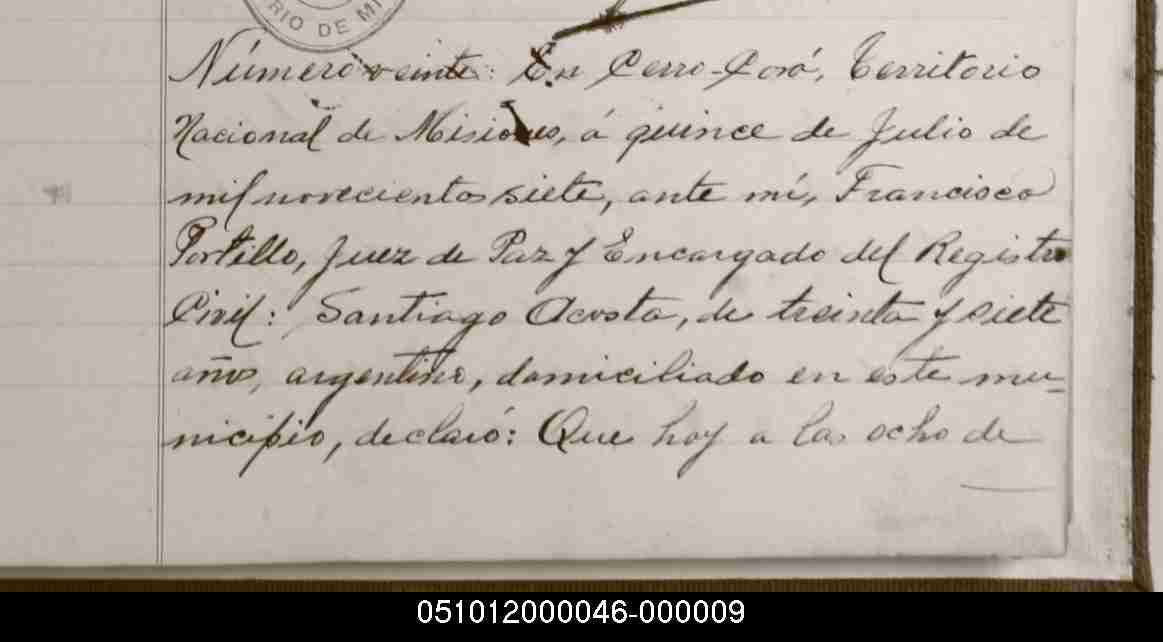 RIO DE MI
Número veinte: En Cerro-Corá, Territorio
Nacional de Misiones, á quince de Julio de
mil novecientos siete, ante mí, Francisco
Portillo, Juez de Paz y Encargado del Registro
Civil: Santiago Acosta, de treinta y siete
años, argentino, domiciliado en este mu=
nicipio, declaró: Que hoy a las ocho de
051012000046-000009